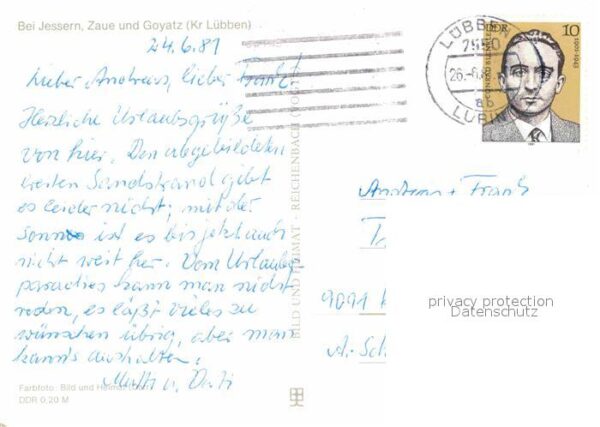 Bei Jessern, Zaue und Goyatz (Kr Lübben)
24.6.81
Lieber Andreas, lieber Frank!
Herzliche Urlaubsgrüße
von hier. Den abgebildeten
breiten Sandstrand gibt
es leider nicht; mit der
Sonne ist es bis jetzt auch
nicht weit her. Vom Urlaubs-
paradies kann man nicht
reden, es läßt vieles zu
wünschen übrig, aber man
kann's aushalten!
Mutti u. Vati
Farbfoto: Bild und Heimat
DDR 0,20 M
BILD UND HEIMAT · REICHENBACH
LÜBBEN
7550
26.-6.8
ab
LÜBBEN
DDR
10
Andreas + Frank
9091
A.-Sch
privacy protection
Datenschutz